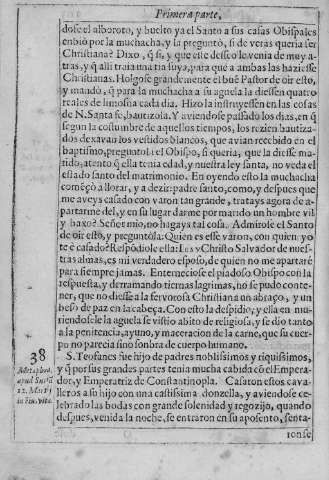 Primera parte,
dose el alboroto, y buelto ya el Santo a sus casas Obispales
enbiò por la muchacha, y la preguntò, si de veras queria ser
Christiana? Dixo, q̃ si, y que este desseo le venia de muy a-
tras, y q̃ alli traia una tia suya, para que a ambas las haziesse
Christianas. Holgose grandemente el buẽ Pastor de oir esto,
y mandò, q̃ para la muchacha a su aguela la diessen quatro
reales de limosna cada dia. Hizo la instruyessen en las cosas
de N. Santa fe, bautizola. Y aviendose passado los dias, en q̃
segun la costumbre de aquellos tiempos, los rezien bautiza-
dos dexavan los vestidos blancos, que avian recebido en el
baptismo, preguntola el Obispo, si queria, que la diesse ma-
rido, atento q̃ ella tenia edad, y nuestra ley santa, no veda el
estado santo del matrimonio. En oyendo esto la muchacha
comẽçò a llorar, y a dezir: padre santo, como, y despues que
me aveys casado con varon tan grande, tratays agora de a-
partarme del, y en su lugar darme por marido un hombre vil
y baxo? Señor mio, no hagays tal cosa. Admirose el Santo
de oir esto, y preguntòla: Quien es esse varon, con quien yo
te è casado? Respõdiole ella: Iesu Christo Salvador de nues-
tras almas, es mi verdadero esposo, de quien no me apartarè
para siempre jamas. Enterneciose el piadoso Obispo con la
respuesta, y derramando tiernas lagrimas, no se pudo conte-
ner, que no diesse a la fervorosa Christiana un abraço, y un
beso de paz en la cabeça. Con esto la despidio, y ella en mu-
riendosele la aguela se vistio abito de religiosa, y se dio tanto
a la penitencia, ayuno, y maceracion de la carne, que su cuer-
po no parecia sino sonbra de cuerpo humano.
38
S. Teofanes fue hijo de padres noblissimos y riquissimos,
y q̃ por sus grandes partes tenia mucha cabida cõ el Empera-
dor, y Emperatriz de Constantinopla. Casaron estos cava-
lleros a su hijo con una castissima donzella, y aviendose ce-
lebrado las bodas con grande solenidad y regozijo, quando
despues, venida la noche, se entraron en su aposento, senta-
ronse